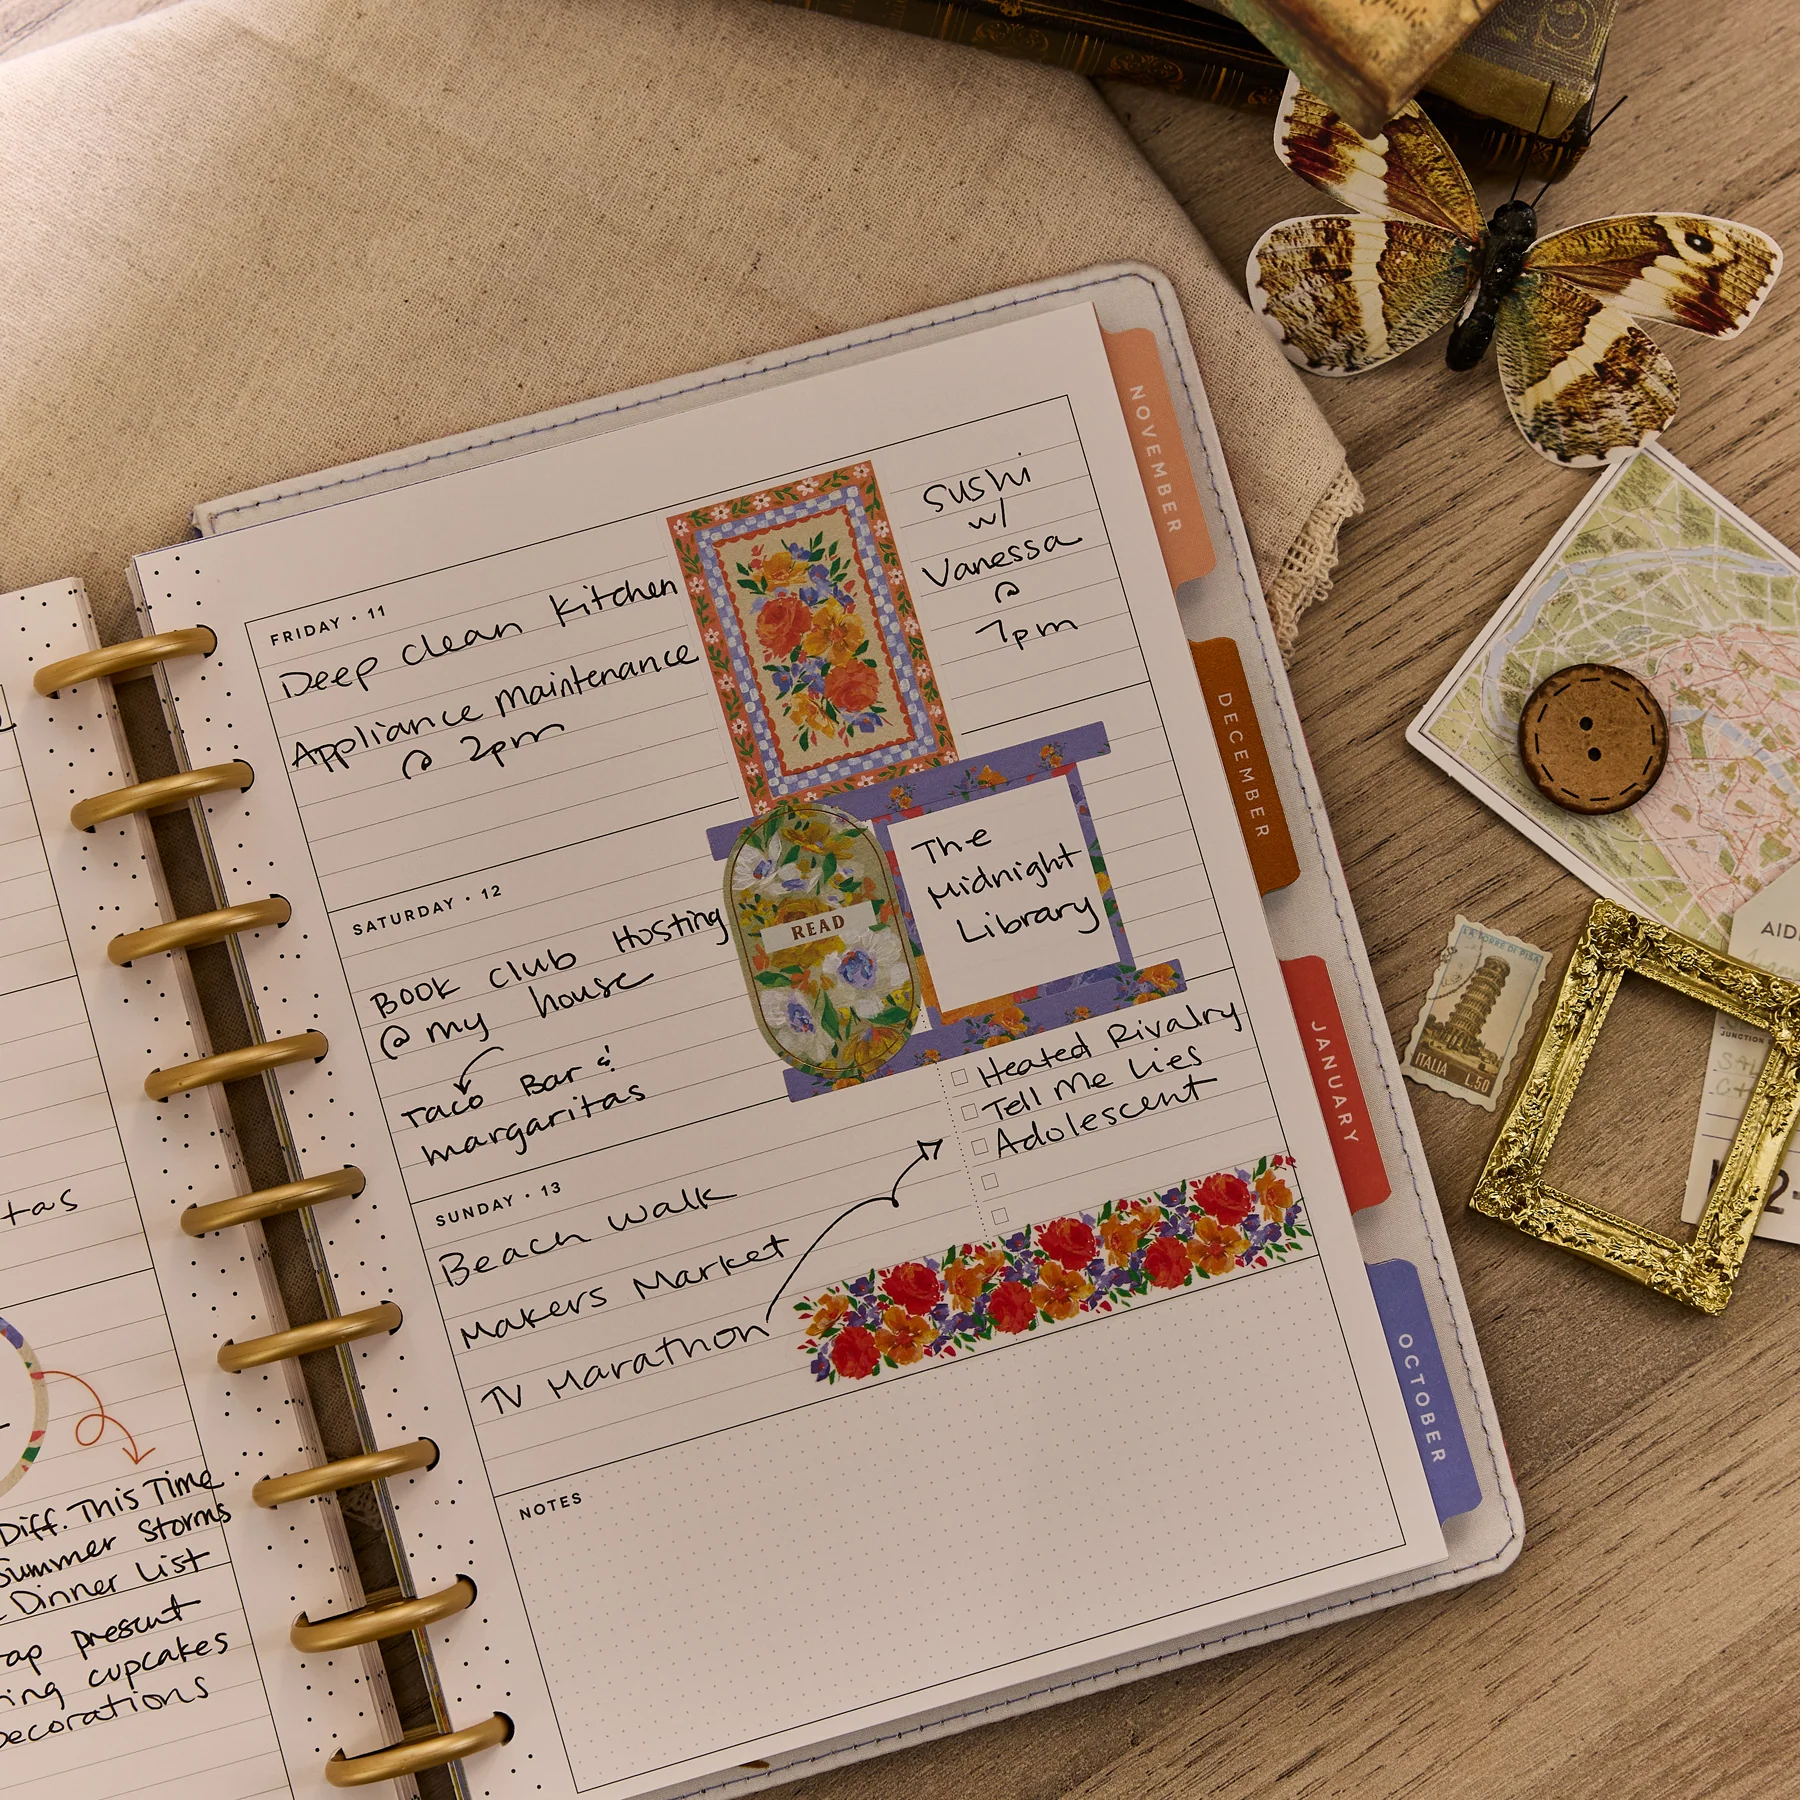 FRIDAY • 11
Deep clean kitchen
Appliance Maintenance
@ 2pm
Sushi
w/
Vanessa
@
7pm
SATURDAY • 12
Book Club Hosting
@ my house
Taco Bar &
margaritas
READ
The
Midnight
Library
SUNDAY • 13
Beach walk
Makers Market
TV Marathon
Heated Rivalry
Tell Me Lies
Adolescent
NOTES
tas
Diff. This Time
Summer Storms
Dinner List
ap present
ing cupcakes
Decorations
NOVEMBER
DECEMBER
JANUARY
OCTOBER
LA TORRE DI PISA
ITALIA L.50
AID
JUNCTION